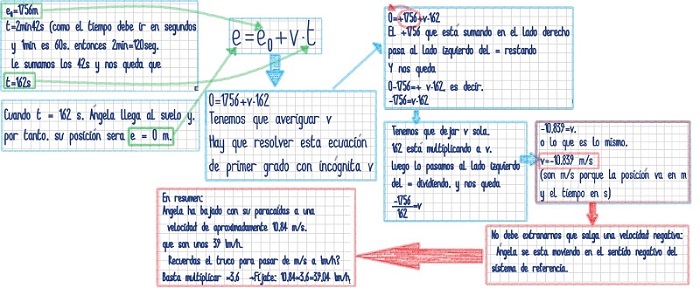 e₀=1756m
t=2min42s (como el tiempo debe ir en segundos
y 1min es 60s, entonces 2min=120seg.
Le sumamos los 42s y nos queda que
t=162s
Cuando t = 162 s. Ángela llega al suelo y,
por tanto, su posición sera e = 0 m.
e=e₀+v·t
0=1756+v·162
Tenemos que averiguar v
Hay que resolver esta ecuación
de primer grado con incógnita v
0=+1756+v·162
EL +1756 que está sumando en el lado derecho
pasa al lado izquierdo del = restando
Y nos queda
0-1756=+ v·162, es decir.
-1756=v·162
Tenemos que dejar v sola.
162 está multiplicando a v.
luego lo pasamos al lado izquierdo
del = dividiendo, y nos queda
-1756
162 =v
-10,839=v.
o lo que es lo mismo.
v=-10,839 m/s
(son m/s porque la posición va en m
y el tiempo en s)
No debe extrañarnos que salga una velocidad negativa:
Ángela se esta moviendo en el sentido negativo del
sistema de referencia.
En resumen:
Angela ha bajado con su paracaídas a una
velocidad de aproximadamente 10,84 m/s.
que son unos 39 km/h.
Recuerdas el truco para pasar de m/s a km/h?
Basta multiplicar ·3,6 →Fíjate: 10,84·3,6=39,04 km/h